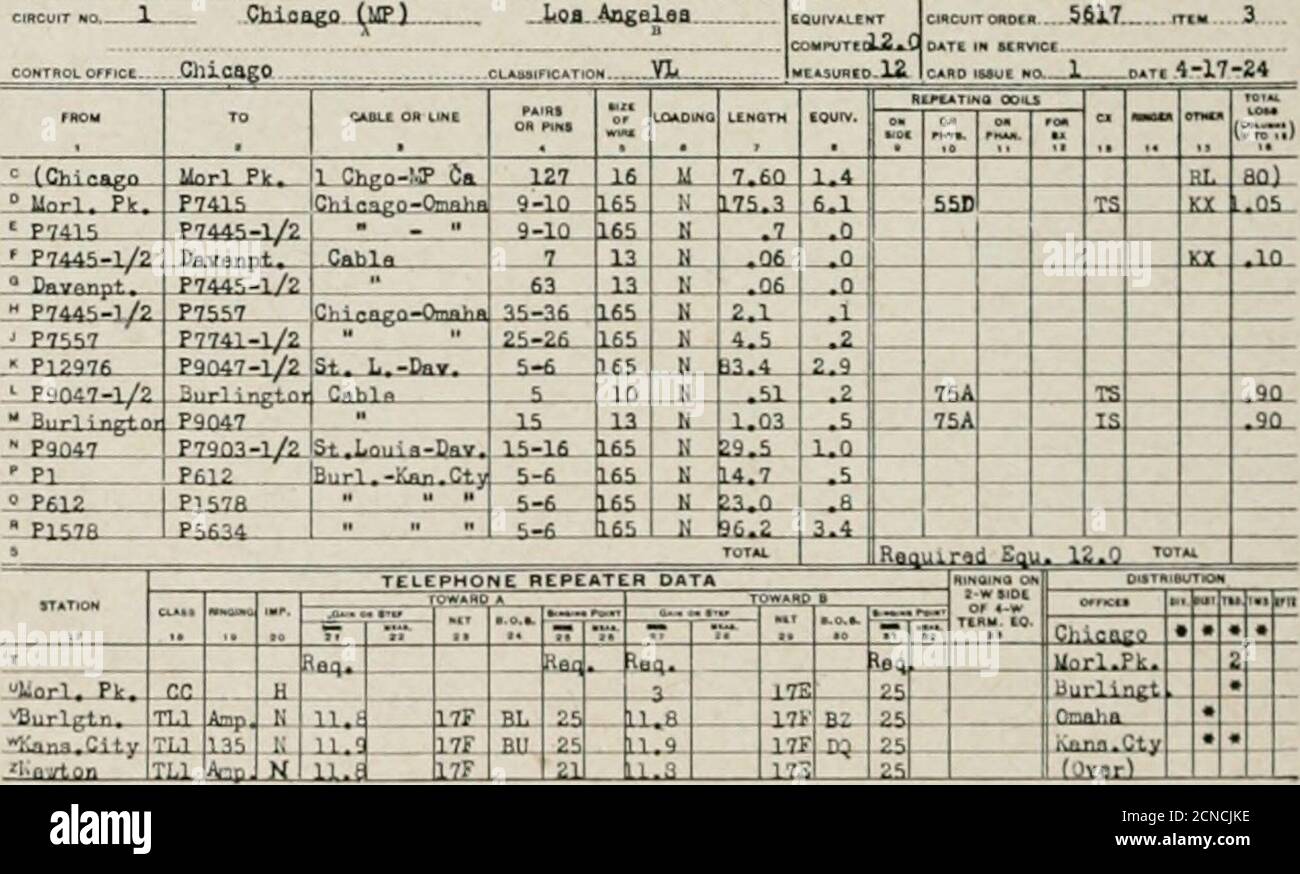 CIRCUIT NO. 1 Chicago (MP) Los Angeles EQUIVALENT CIRCUIT ORDER 5617 ITEM 3
A B COMPUTED 12.0 DATE IN SERVICE
CONTROL OFFICE Chicago CLASSIFICATION VL MEASURED 12 CARD ISSUE NO. 1 DATE 4-17-24
FROM TO CABLE OR LINE PAIRS OR PINS SIZE OF WIRE LOADING LENGTH EQUIV. REPEATING COILS CX RINGER OTHER TOTAL LOSS
ON SIDE OR PHAN. FOR BX
1 2 3 4 5 6 7 8 9 10 11 12 13 14 15 16
C (Chicago Morl Pk. 1 Chgo-MP Ca 127 16 M 7.60 1.4 RL 80)
D Morl. Pk. P7415 Chicago-Omaha 9-10 165 N 175.3 6.1 55D TS KX 1.05
E P7415 P7445-1/2 " - " 9-10 165 N .7 .0
F P7445-1/2 Davenpt. Cable 7 13 N .06 .0 KX .10
G Davenpt. P7445-1/2 " 63 13 N .06 .0
H P7445-1/2 P7557 Chicago-Omaha 35-36 165 N 2.1 .1
J P7557 P7741-1/2 " " 25-26 165 N 4.5 .2
K P12976 P9047-1/2 St. L.-Dav. 5-6 165 N 83.4 2.9
L P9047-1/2 Burlington Cable 5 10 N .51 .2 75A TS .90
M Burlington P9047 " 15 13 N 1.03 .5 75A IS .90
N P9047 P7903-1/2 St.Louis-Dav. 15-16 165 N 29.5 1.0
P P1 P612 Burl.-Kan.Cty 5-6 165 N 14.7 .5
Q P612 P1578 " " " 5-6 165 N 23.0 .8
R P1578 P5634 " " " 5-6 165 N 96.2 3.4
S TOTAL Required Equ. 12.0 TOTAL
TELEPHONE REPEATER DATA RINGING ON 2-W SIDE OF 4-W TERM. EQ. DISTRIBUTION
STATION CLASS RINGING IMP. TOWARD A TOWARD B OFFICES DIV. DIST.
GAIN OR STEP NET B.O.B. SINGING POINT GAIN OR STEP NET B.O.B. SINGING POINT
18 19 20 21 22 23 24 25 26 27 28 29 30 Chicago * * * *
T Req. Req. Req. Req. Morl.Pk. 2
U Morl. Pk. CC H 3 17E 25 Burlingt. *
V Burlgtn. TL1 Amp. N 11.8 17F BL 25 11.8 17F BZ 25 Omaha *
W Kans.City TL1 135 N 11.9 17F BU 25 11.9 17F DQ 25 Kans.Cty * *
Z Nawton TL1 Amp. N 11.8 17F 21 11.8 17E 25 (Over)
alamy
Image ID: 2CNCJKE
www.alamy.com